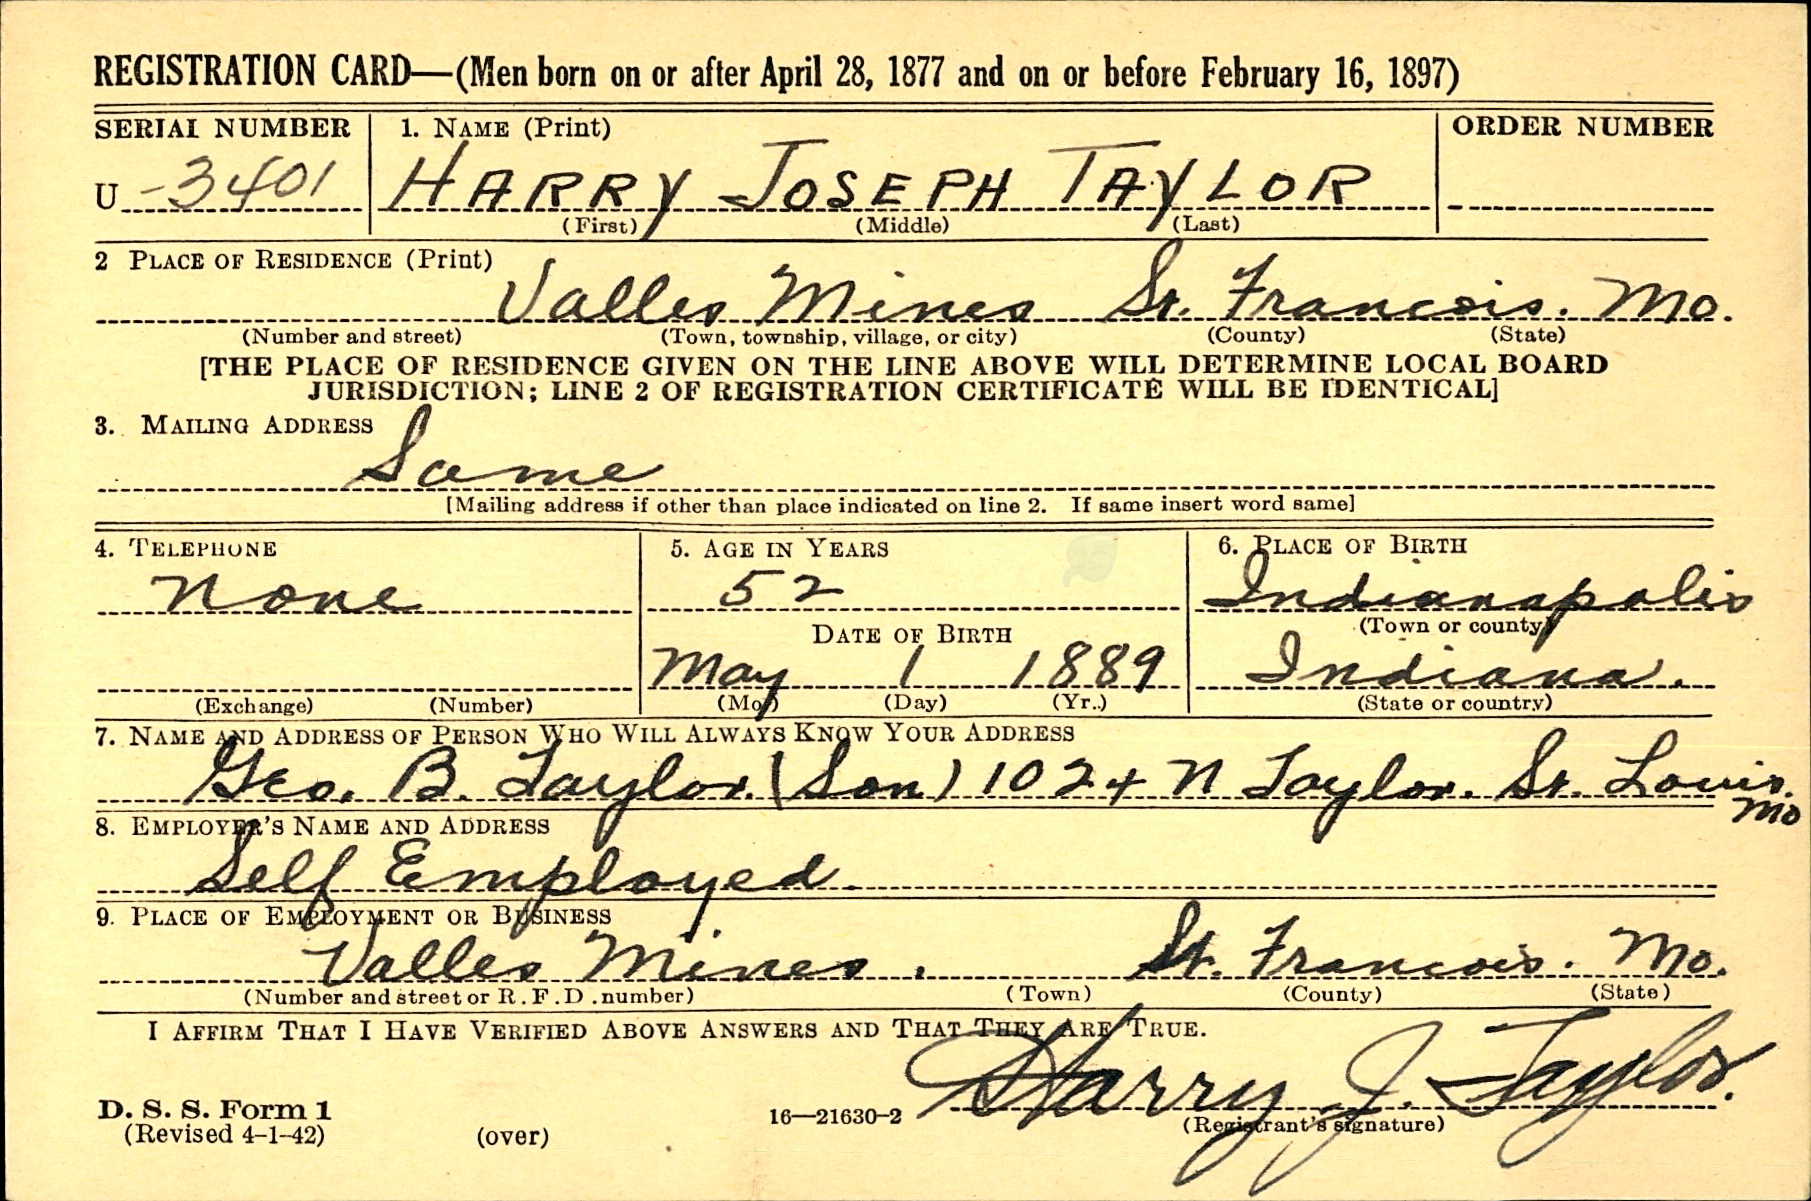 REGISTRATION CARD—(Men born on or after April 28, 1877 and on or before February 16, 1897)
SERIAL NUMBER 1. NAME (Print) ORDER NUMBER
U -3401 HARRY JOSEPH TAYLOR
(First) (Middle) (Last)
2 PLACE OF RESIDENCE (Print)
Valles Mines St. Francois. Mo.
(Number and street) (Town, township, village, or city) (County) (State)
[THE PLACE OF RESIDENCE GIVEN ON THE LINE ABOVE WILL DETERMINE LOCAL BOARD
JURISDICTION; LINE 2 OF REGISTRATION CERTIFICATE WILL BE IDENTICAL]
3. MAILING ADDRESS
Same
[Mailing address if other than place indicated on line 2. If same insert word same]
4. TELEPHONE 5. AGE IN YEARS 6. PLACE OF BIRTH
None 52 Indianapolis
DATE OF BIRTH (Town or county)
May 1 1889 Indiana.
(Exchange) (Number) (Mo.) (Day) (Yr..) (State or country)
7. NAME AND ADDRESS OF PERSON WHO WILL ALWAYS KNOW YOUR ADDRESS
Geo. B. Taylor. (Son) 1024 N Taylor. St. Louis.
Mo
8. EMPLOYER'S NAME AND ADDRESS
Self Employed.
9. PLACE OF EMPLOYMENT OR BUSINESS
Valles Mines. St. Francois. Mo.
(Number and street or R.F.D. number) (Town) (County) (State)
I AFFIRM THAT I HAVE VERIFIED ABOVE ANSWERS AND THAT THEY ARE TRUE.
Harry J. Taylor.
D. S. S. Form 1 16—21630-2 (Registrant's signature)
(Revised 4-1-42) (over)